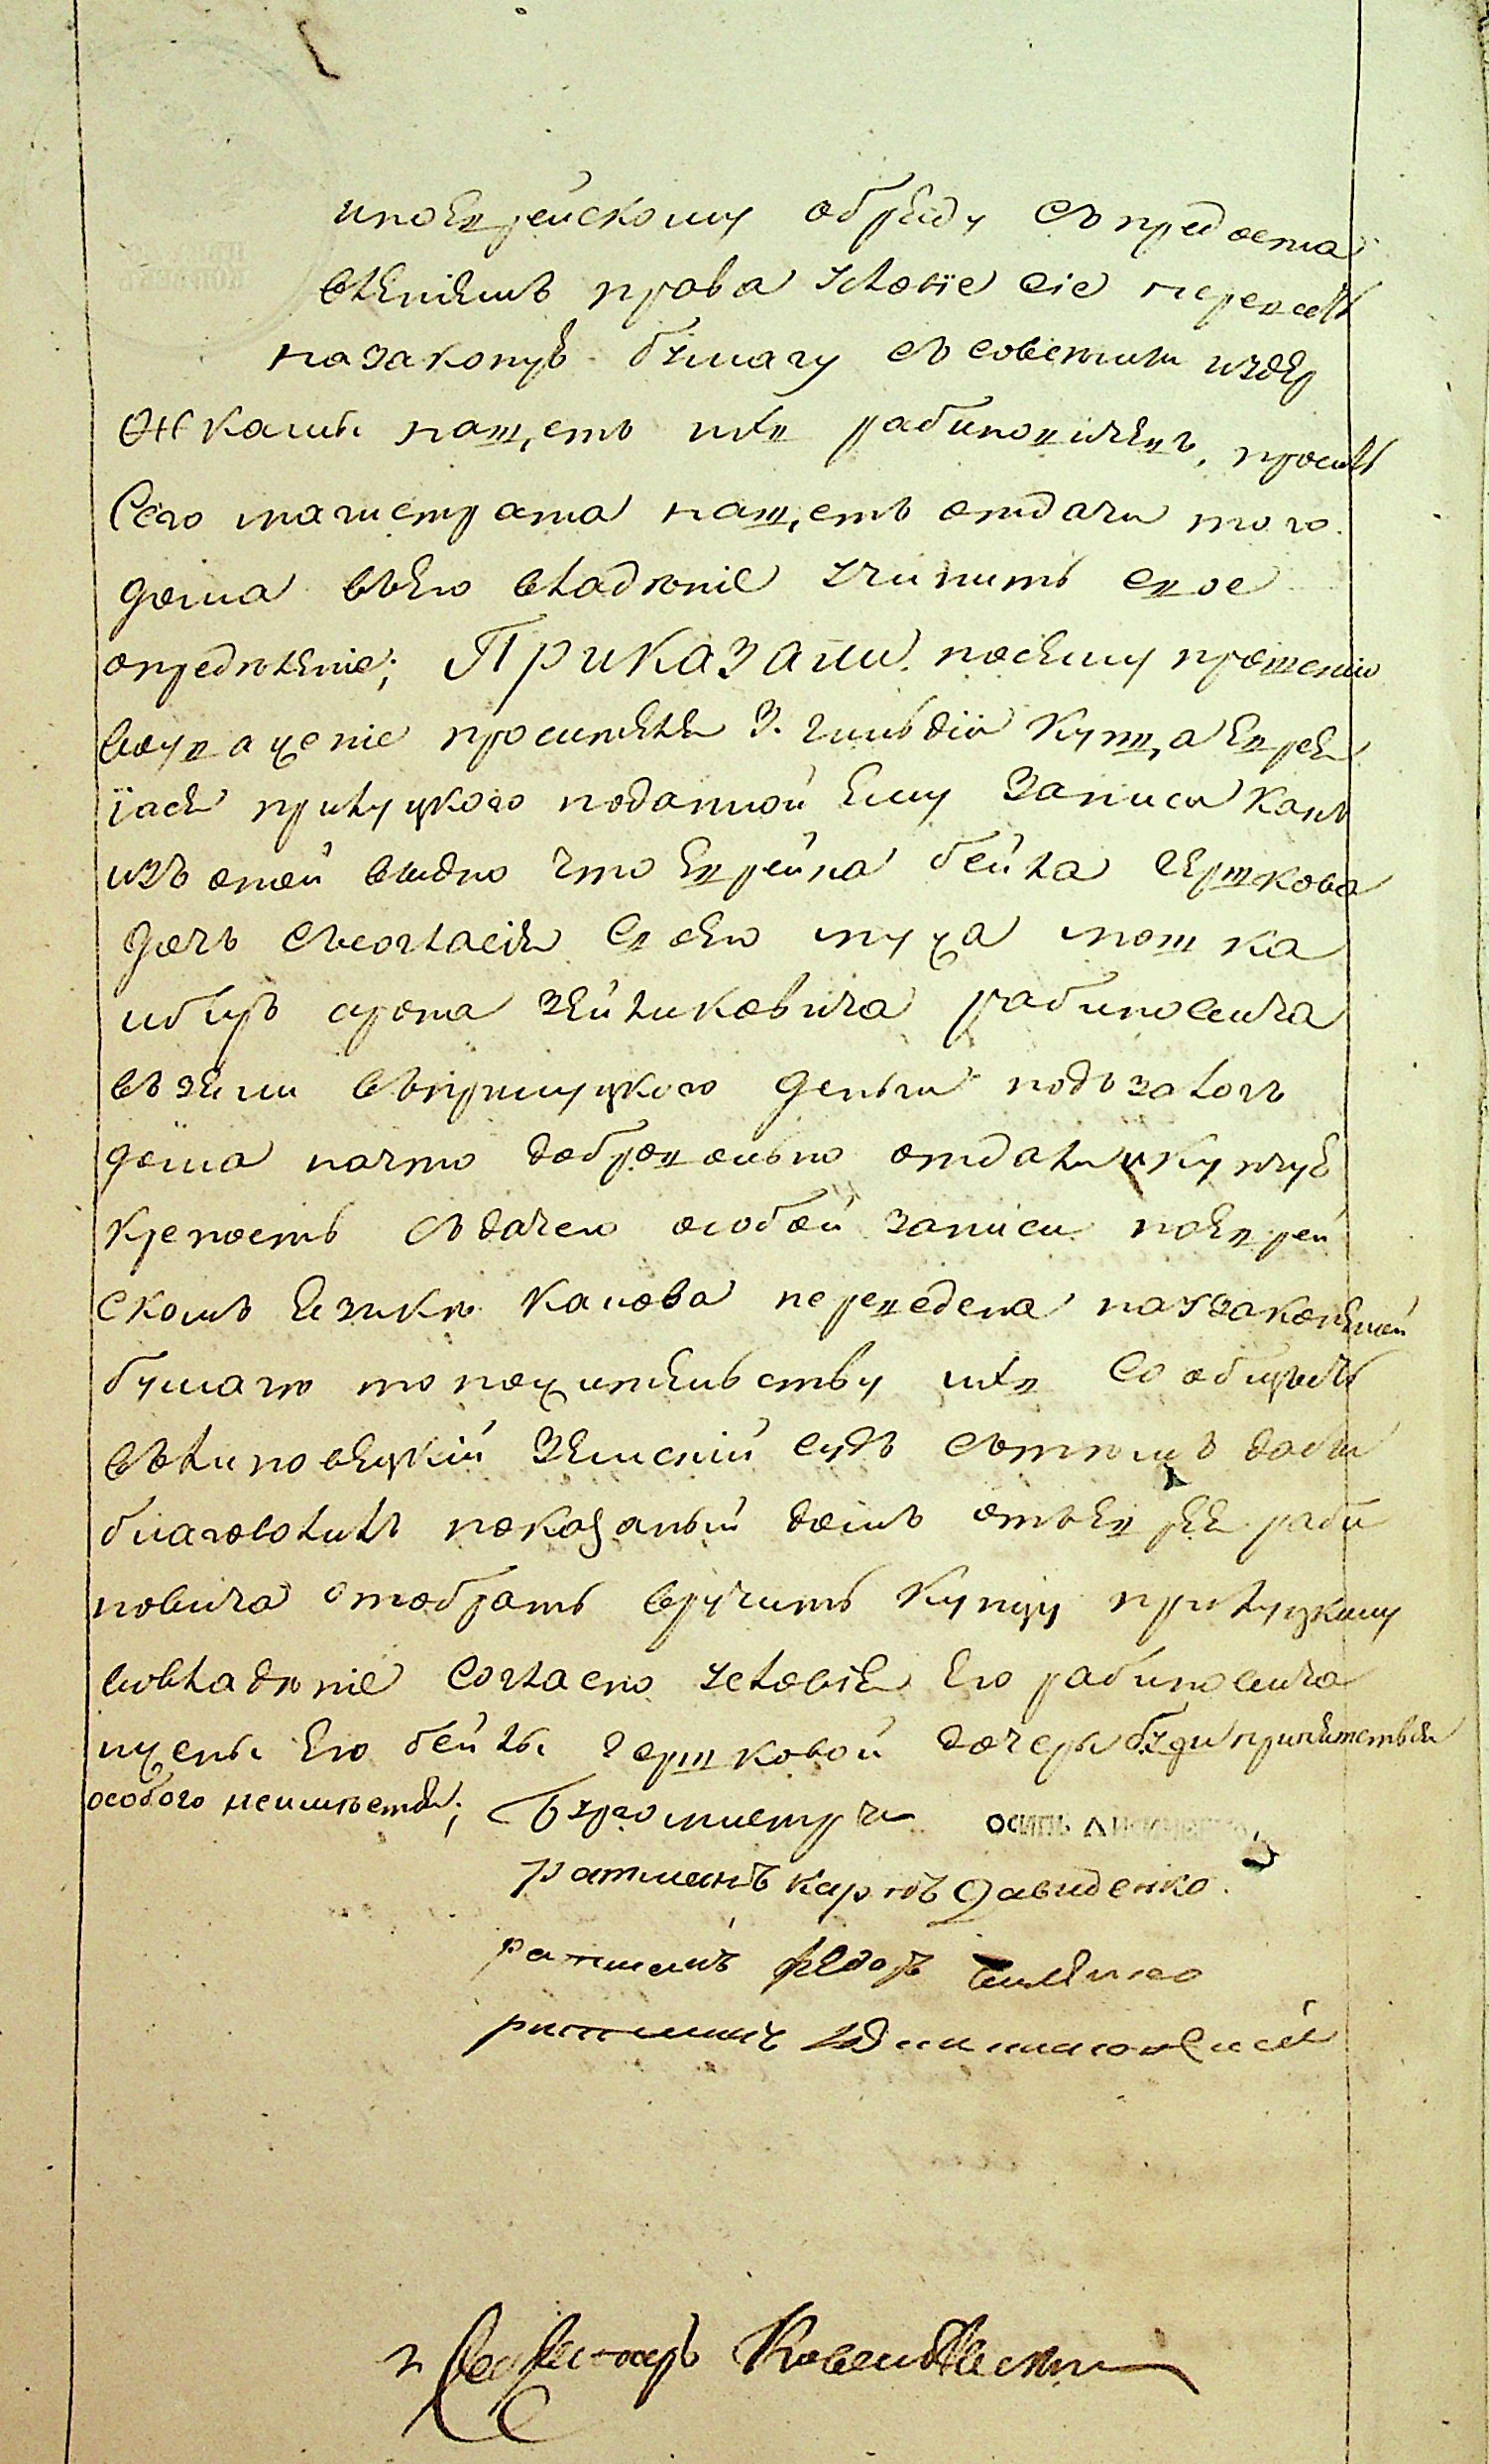 ипоеврейскому обряду съ предоста
вленіемъ права условіе сіе перевесть
на законую бумагу съ совсеми издер
жками нащетъ ихъ рабиновичевъ, проситъ
Сего магистрата нащетъ отдачи того
дома въею владѣніе учинить свое
определеніе; Приказали. посему прошенію
воуважение просителя 3. гильдіи Купца Еврея
іося прилуцкого поданной Ему Записи какъ
изъ оной видно что Еврейка бейла Гершкова
дочь съсогласія Своего мужа мошка
Зейликовича рабиновича
взяли въприлуцкого деньги подъ залогъ
дома начто добровольно отдали Купчую
крепость съдачею особой записи поеврей
скомъ Езике какова переведена на узаконенной
бумагѣ то пожителству ихъ Сообщить
въЛиповецкій Земскій судъ стѣмъ дабы
благоволилъ показаный домъ отъевреа раби
новича отобрать вручить Купцу прилуцкому
вовладѣніе Согласно условія Его рабиновича
ижены Его бейлы гершковой дочери буди препятствія
особого неимѣется; Бургомистръ осипъ
ратманъ карпъ Давиденко.
ратманъ федоръ
ратманъ
Секретарь